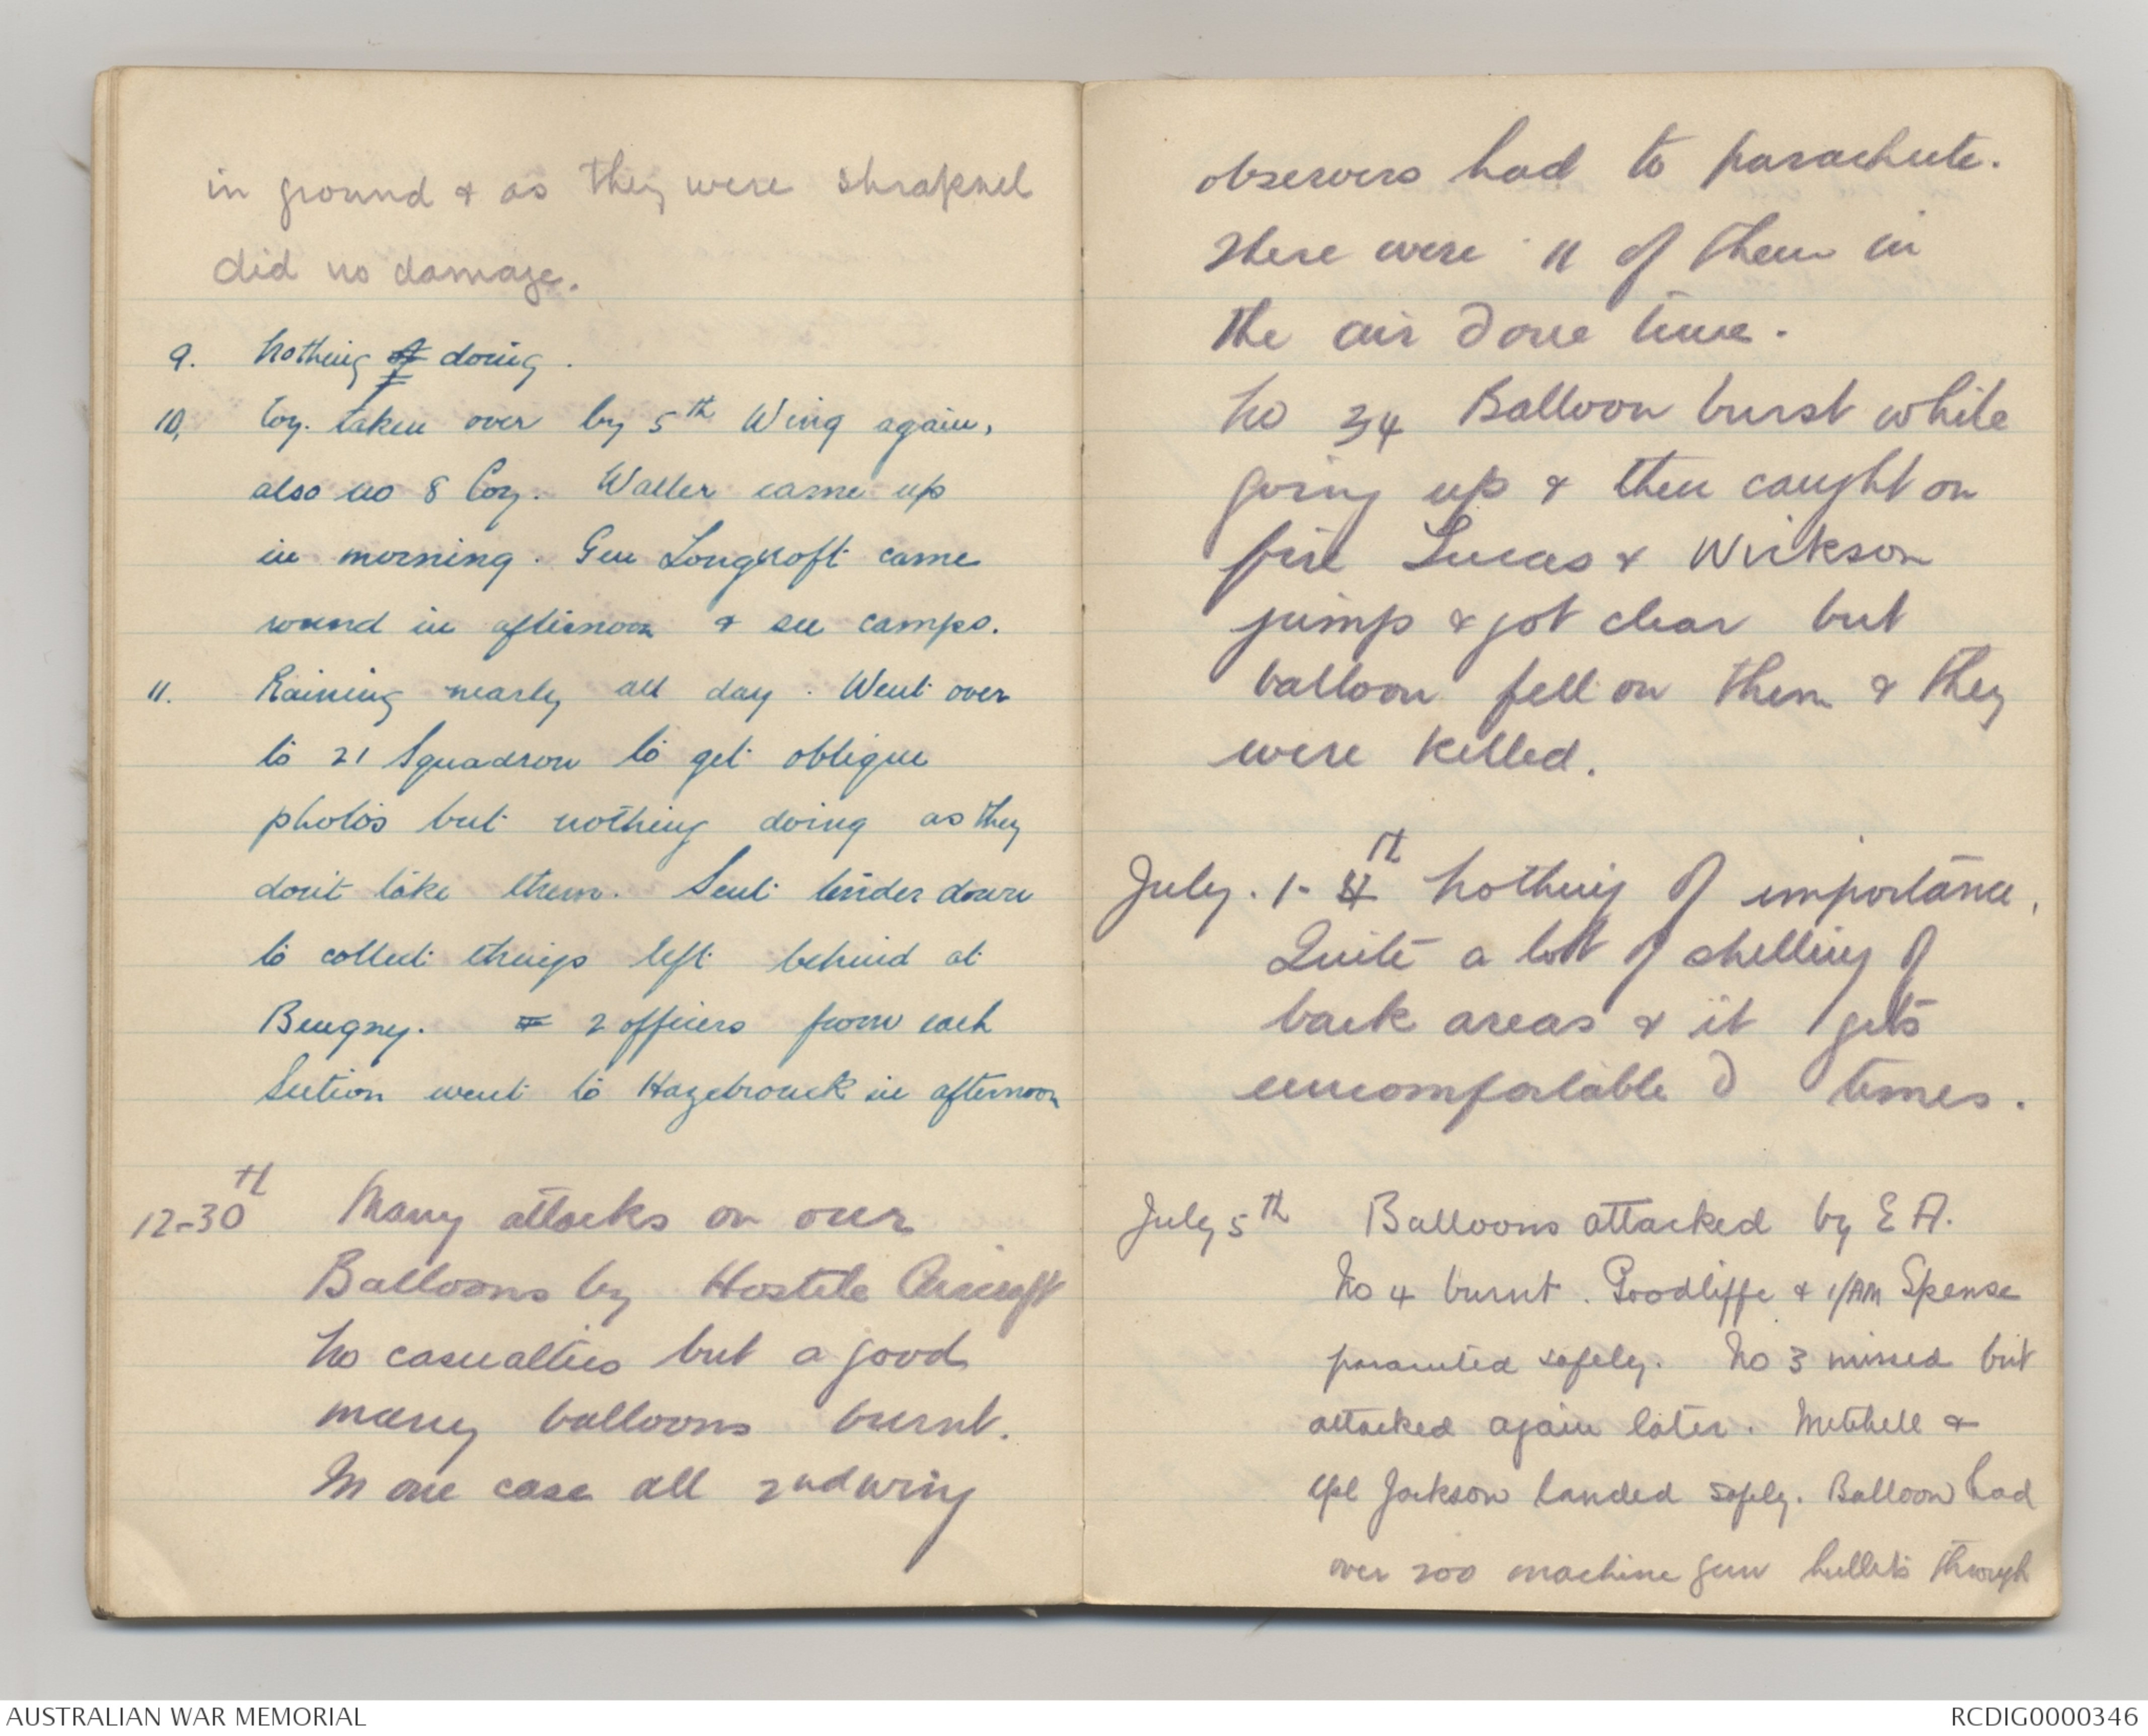 in ground & as they were shrapnel
did no damage.
9. Nothing doing.
10. Coy. taken over by 5th Wing again,
also no 8 Coy. Waller came up
in morning. Gen Longcroft came
round in afternoon & see camps.
11. Raining nearly all day. Went over
to 21 Squadron to get oblique
photos but nothing doing as they
don't take them. Sent tender down
to collect things left behind at
Beugny. 2 officers from each
Section went to Hazebrouck in afternoon
12-30th Many attacks on our
Balloons by Hostile Aircraft
No casualties but a good
many balloons burnt.
In one case all 2nd wing
observers had to parachute.
There were 11 of them in
the air @ one time.
No 34 Balloon burst while
going up & then caught on
fire Lucas & Wickson
jump & got clear but
balloon fell on them & they
were killed.
July. 1-4th Nothing of importance.
Quite a lot of shelling of
back areas & it gets
uncomfortable @ times.
July 5th Balloons attacked by E A.
No 4 burnt. Goodliffe & 1/AM Spense
paracuted safely. No 3 missed but
attacked again later. Mitchell &
Cpl Jackson landed safely. Balloon had
over 200 machine gun bullets through
AUSTRALIAN WAR MEMORIAL
RCDIG0000346